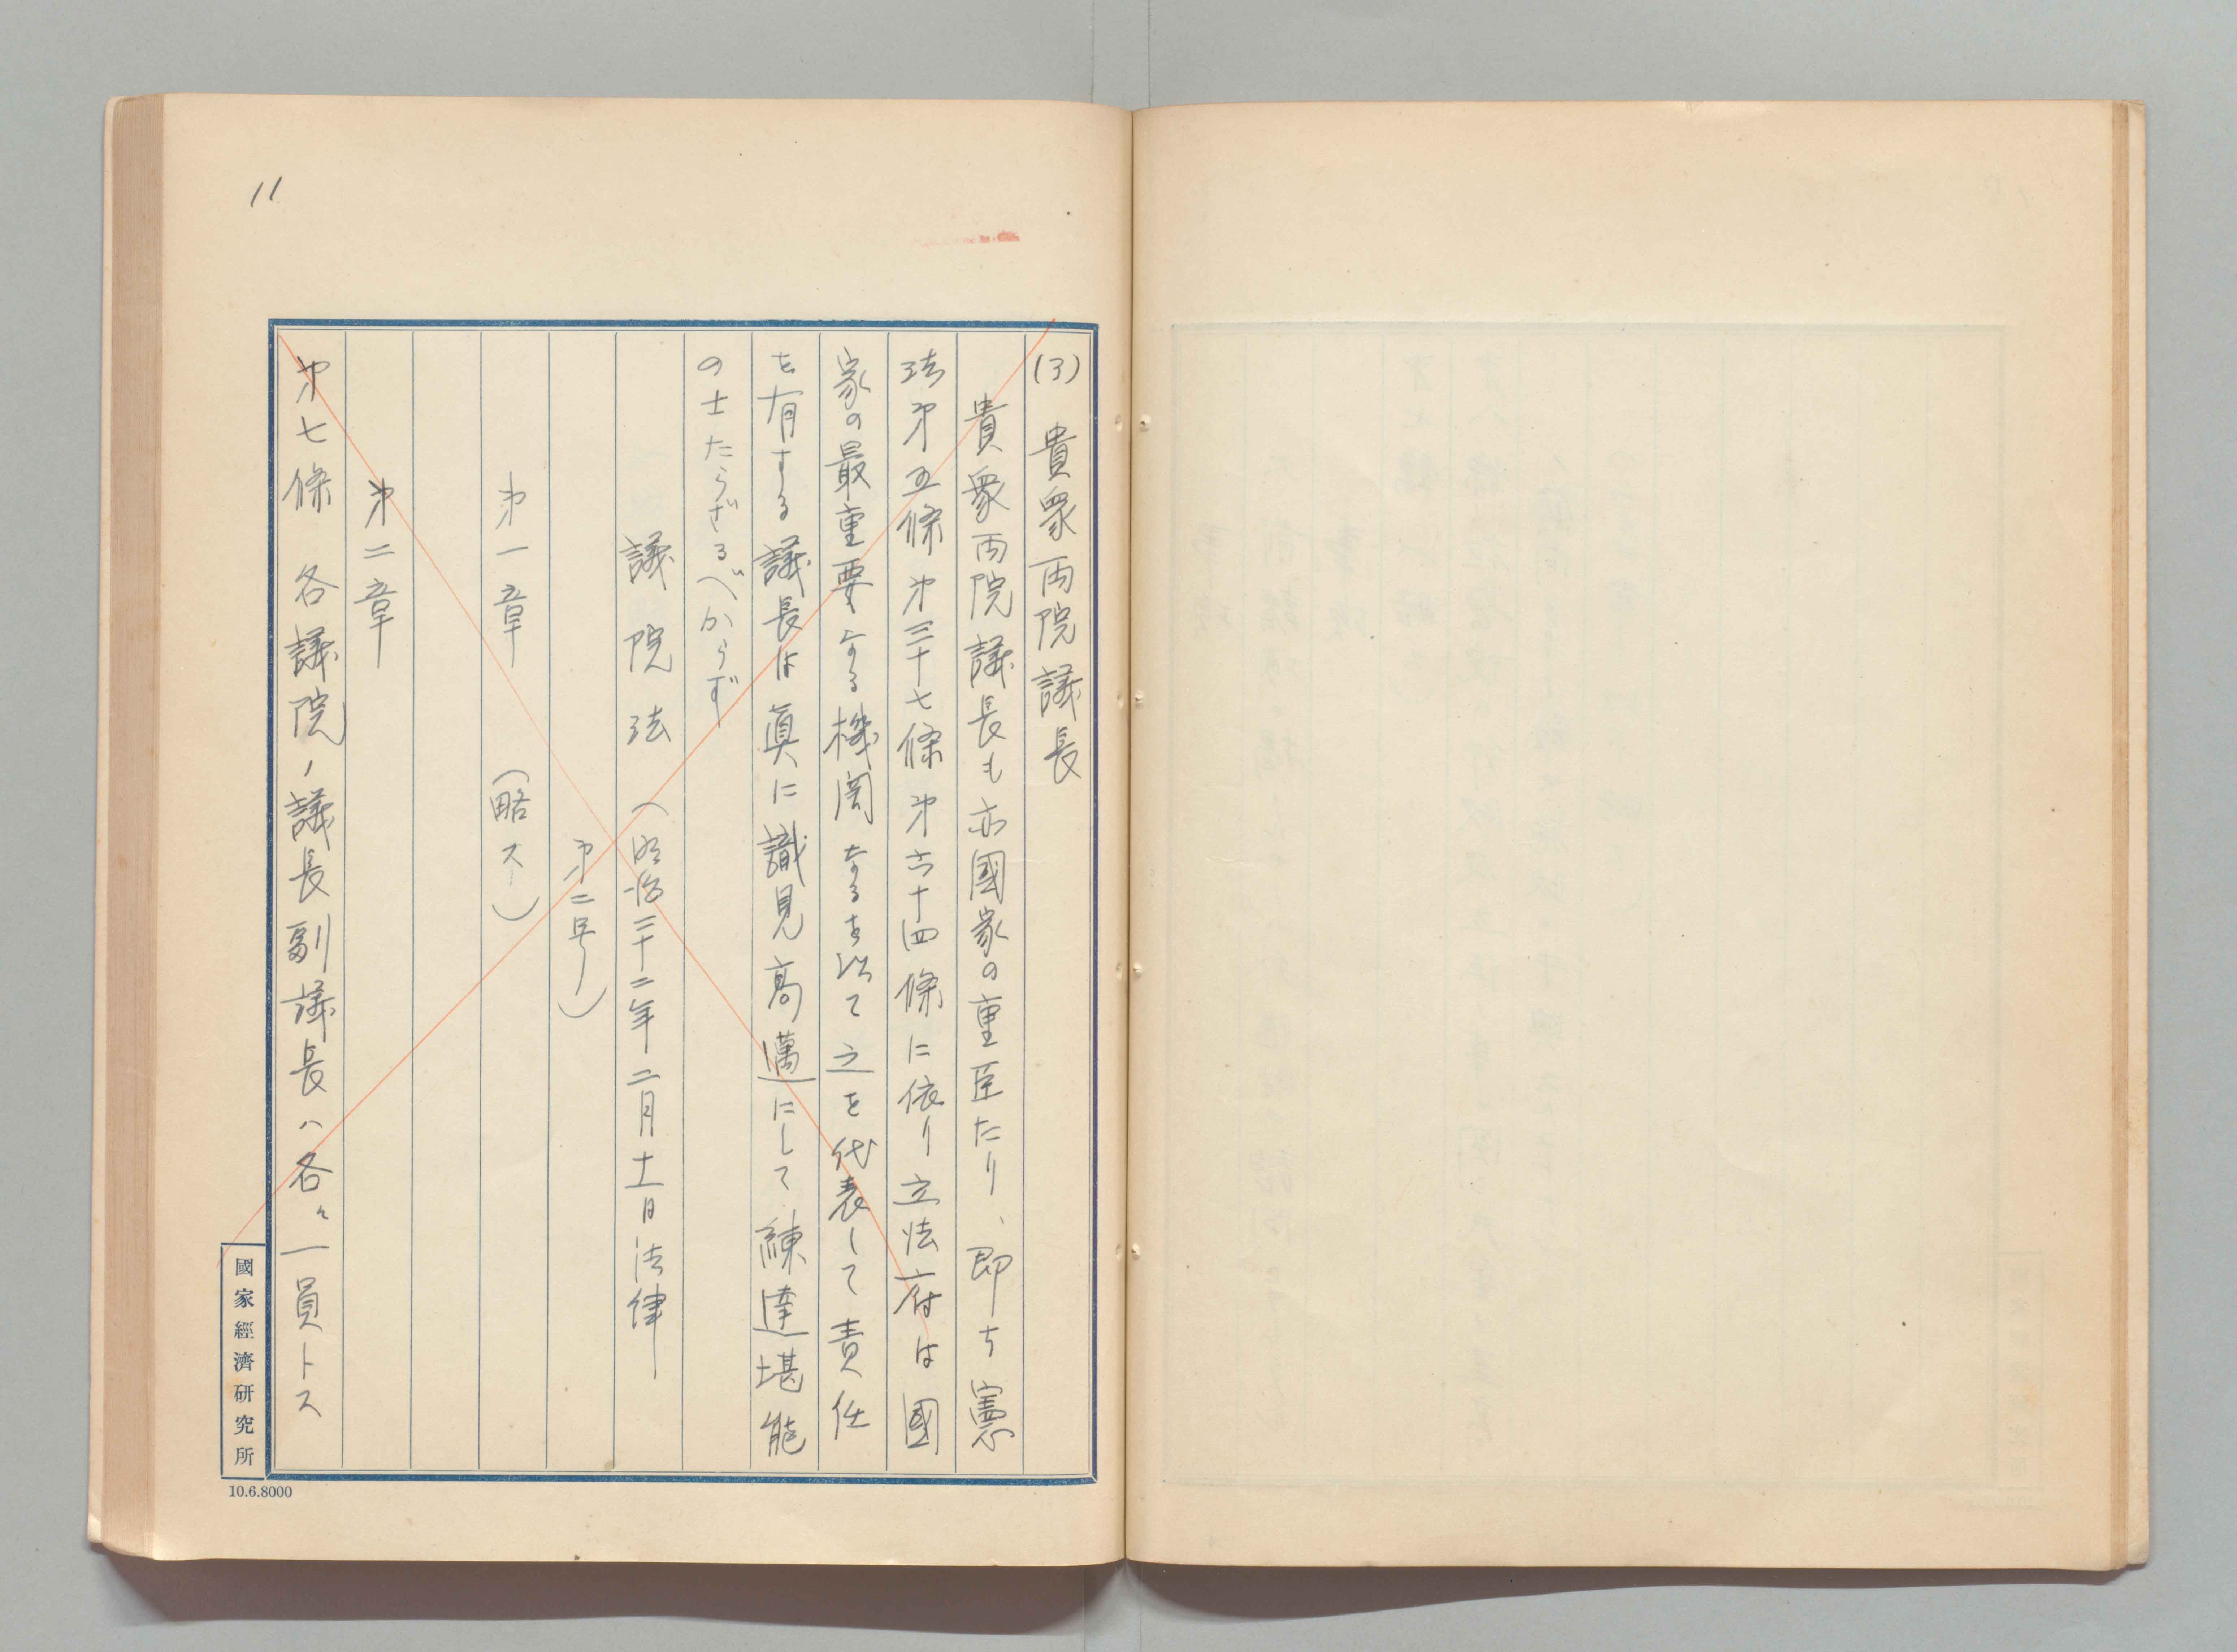 11
(3) 貴衆両院議長
貴衆両院議長も亦國家の重臣たり、即ち憲
法第五條第三十七條第六十四條に依り立法府は國
家の最重要なる機関なるを以て之を代表して責任
を有する議長は眞に識見高邁にして練達堪能
の士たらざるべからず
議院法(明治二十二年二月十一日法律
第二号)
第一章(略ス)
第二章
第七條 各議院ノ議長副議長ハ各々一員トス
國家經濟研究所
10.6.8000